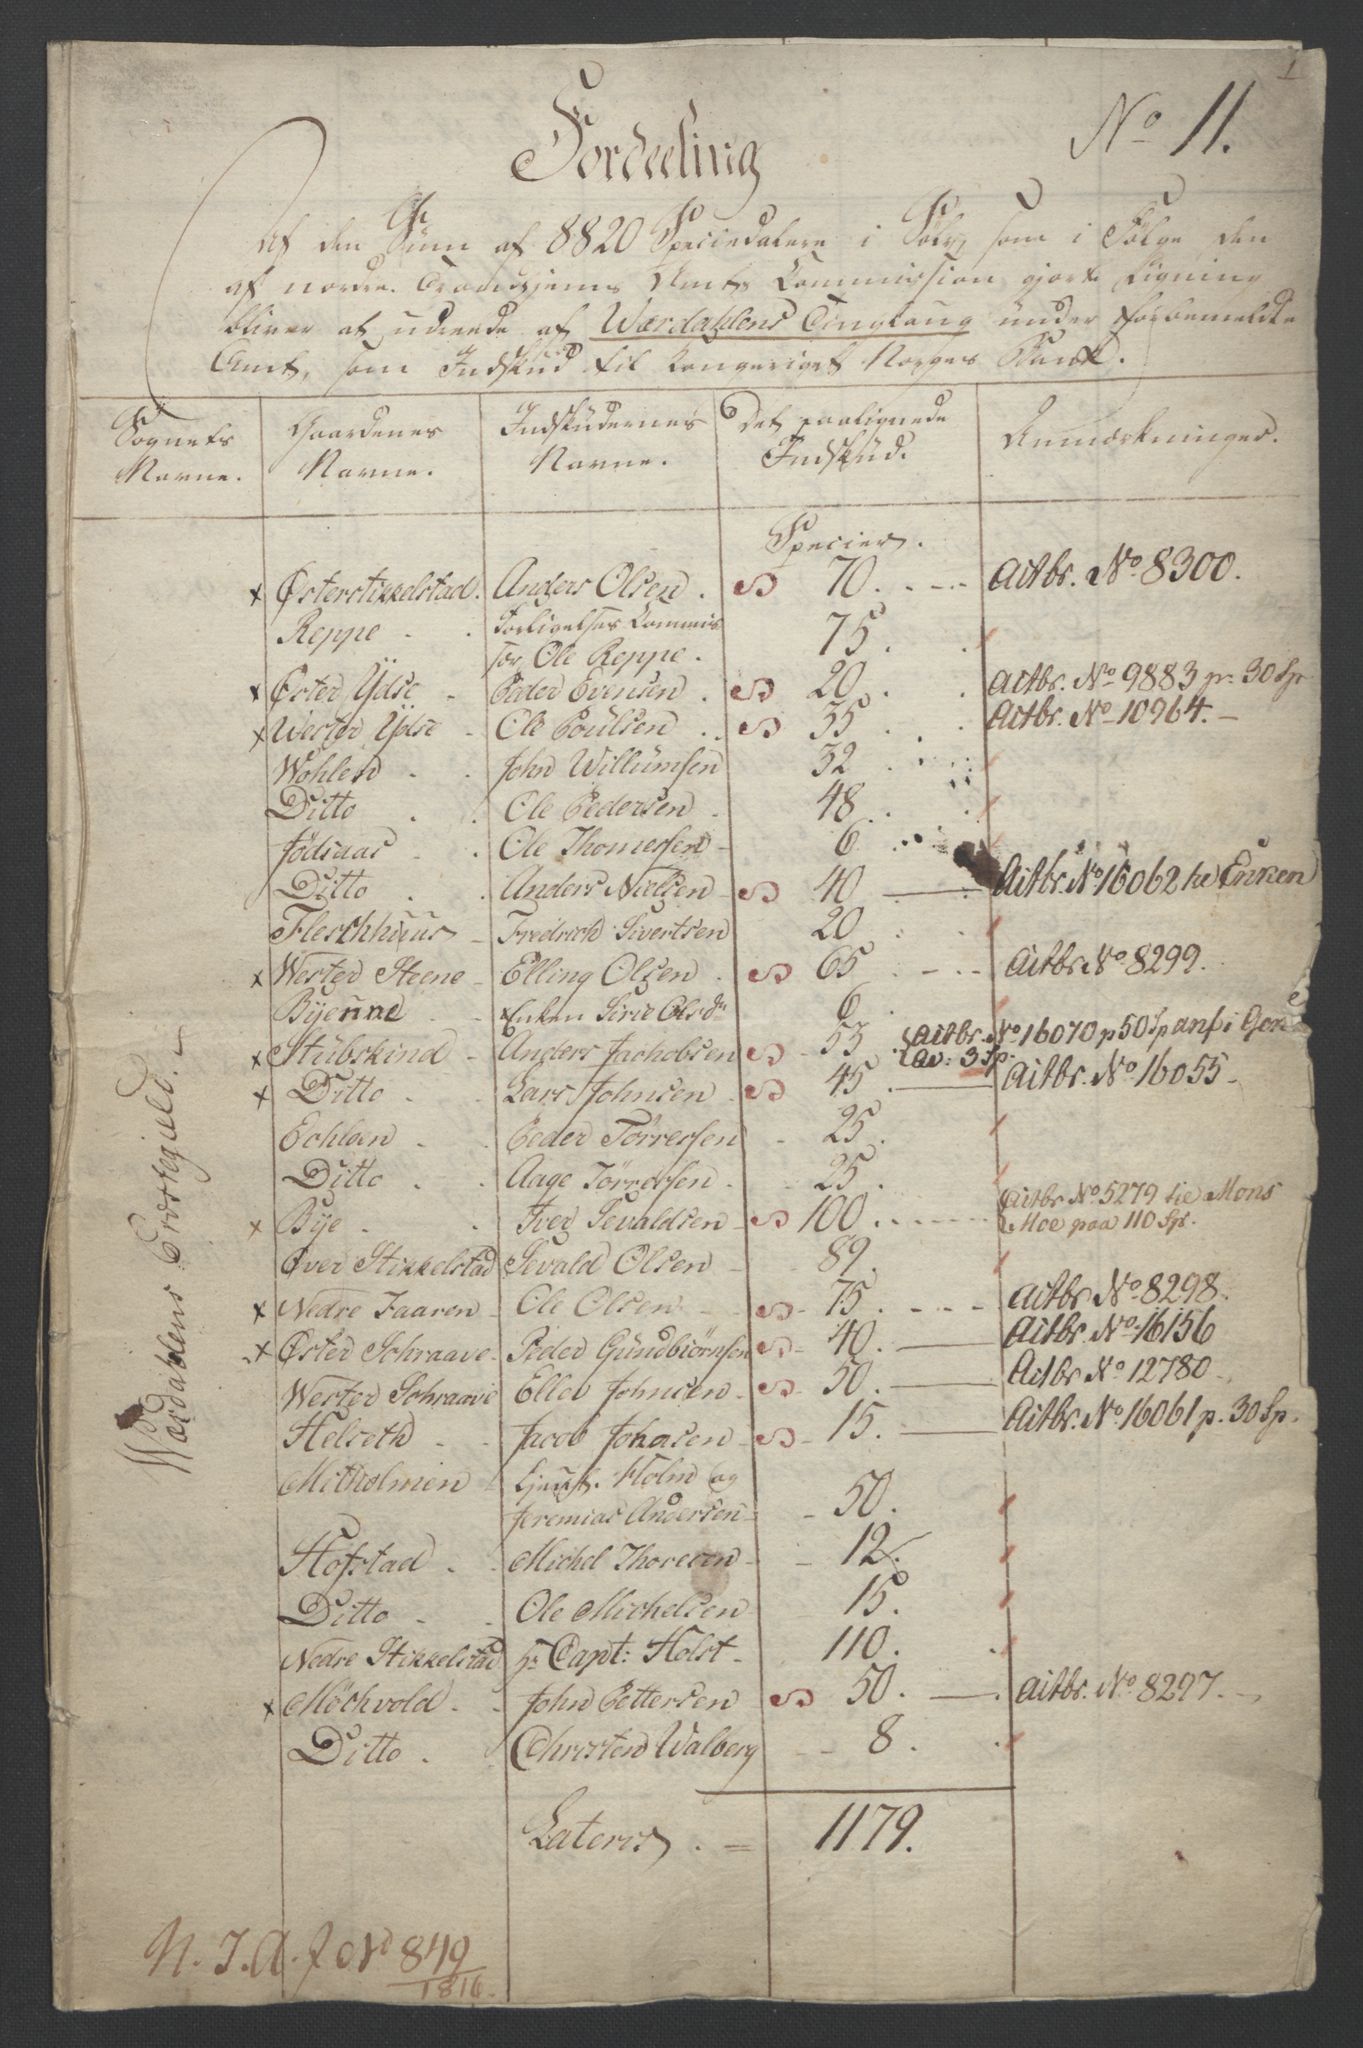 1
No 11.
Fordeeling
Af den Sum af 8820 Speciedalere i Sølv, som i Følge den
af nordre Trondhjems Amts Commission gjorte Ligning
bliver at udreede af Wærdahlens Tinglaug under forbemeldte
Amt, som Indskud til Kongeriget Norges Bank.
Sognets Navne. | Gaardenes Navne. | Indskudernes Navne. | Det paalignede Indskud. | Anmærkninger.
Specier.
Wærdahlens Præstegield.
x Østerstikkelstad. Anders Olsen. S 70. Actbr. No 8300.
Reppe Forligelses Commis
sør Ole Reppe. 75.
x Øster Ydse Peder Evensen. S 20. Actbr. No 9883 pr. 30 Sp
x Wester Ydse Ole Poulsen S 55. Actbr. No 10964.
Wohlen John Willumsen 32.
Ditto Ole Pedersen 48.
Jødsaas Ole Thomessen 6.
Ditto Anders Nielsen S 40 Actbr. No 16062 til Enken
Fleschhuus Fredrich Sivertsen 20
x Wester Steene Elling Olsen S 65. Actbr. No 8299.
Byenne Enken Siri Olsdr 6.
x Stubskind Anders Jachobsen S 53. Actbr. No 16070 p 50 Sp anf i
av: 3 Sp.
x Ditto Lars Johnsen S 45. Actbr. No 16055
Echlen Peder Tørressen 25.
Ditto Aage Tørressen 25.
x Bye Iver Sevaldsen S 100. Actbr No 5279 til Mons
Moe paa 110 Sp.
Over Stikkelstad Sevald Olsen 89.
x Nedre Jaaren Ole Olsen S 75. Actbr. No 8298.
x Øster Schraave Peder Gundbiørnsen S 40. Actbr. No 16156
Wester Schraave Elled Johnsen S 50. Actbr No 12780
Helseth Jacob Johnsen S 15. Actbr. No 16061 p. 30 Sp.
Mitholmen Holm og
Jeremias Andersen 50.
Hofstad Michel Thoresen 12.
Ditto Ole Michelsen 15.
Nedre Stikkelstad Hr Capt: Holst 110.
x Mochvold John Pettersen S 50. Actbr. No 8297.
Ditto Christen Walberg 8.
Lateris = 1179.
N. I. A. f No 849
1816.